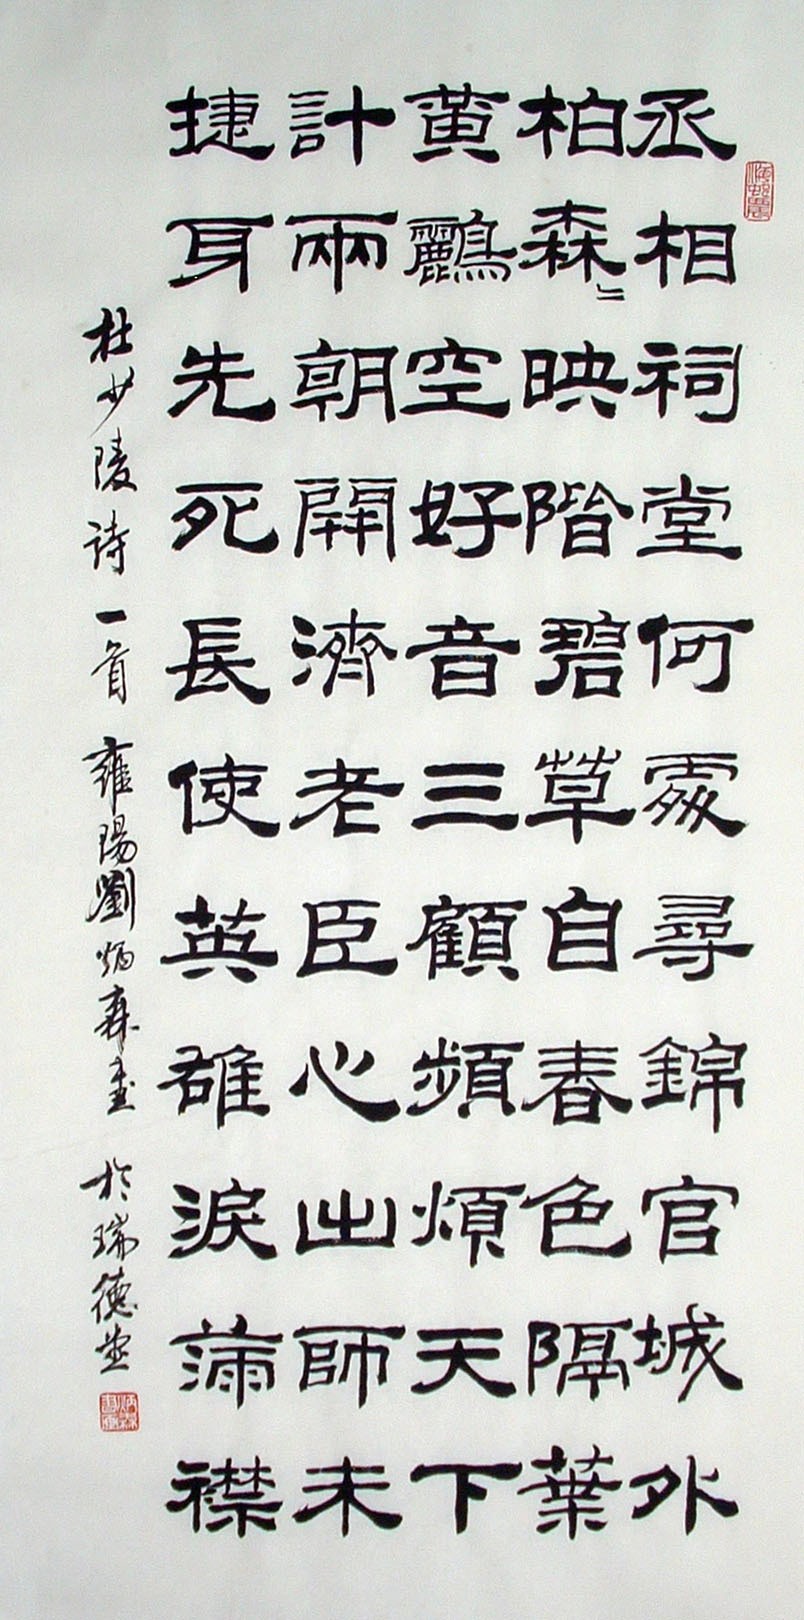 丞相祠堂何處尋錦官城外
柏森〻映階碧草自春色隔葉
黃鸝空好音三顧頻煩天下
計兩朝開濟老臣心出師未
捷身先死長使英雄淚滿襟
杜少陵诗一首 雍陽劉炳森書 於瑞德堂
炳森書畫